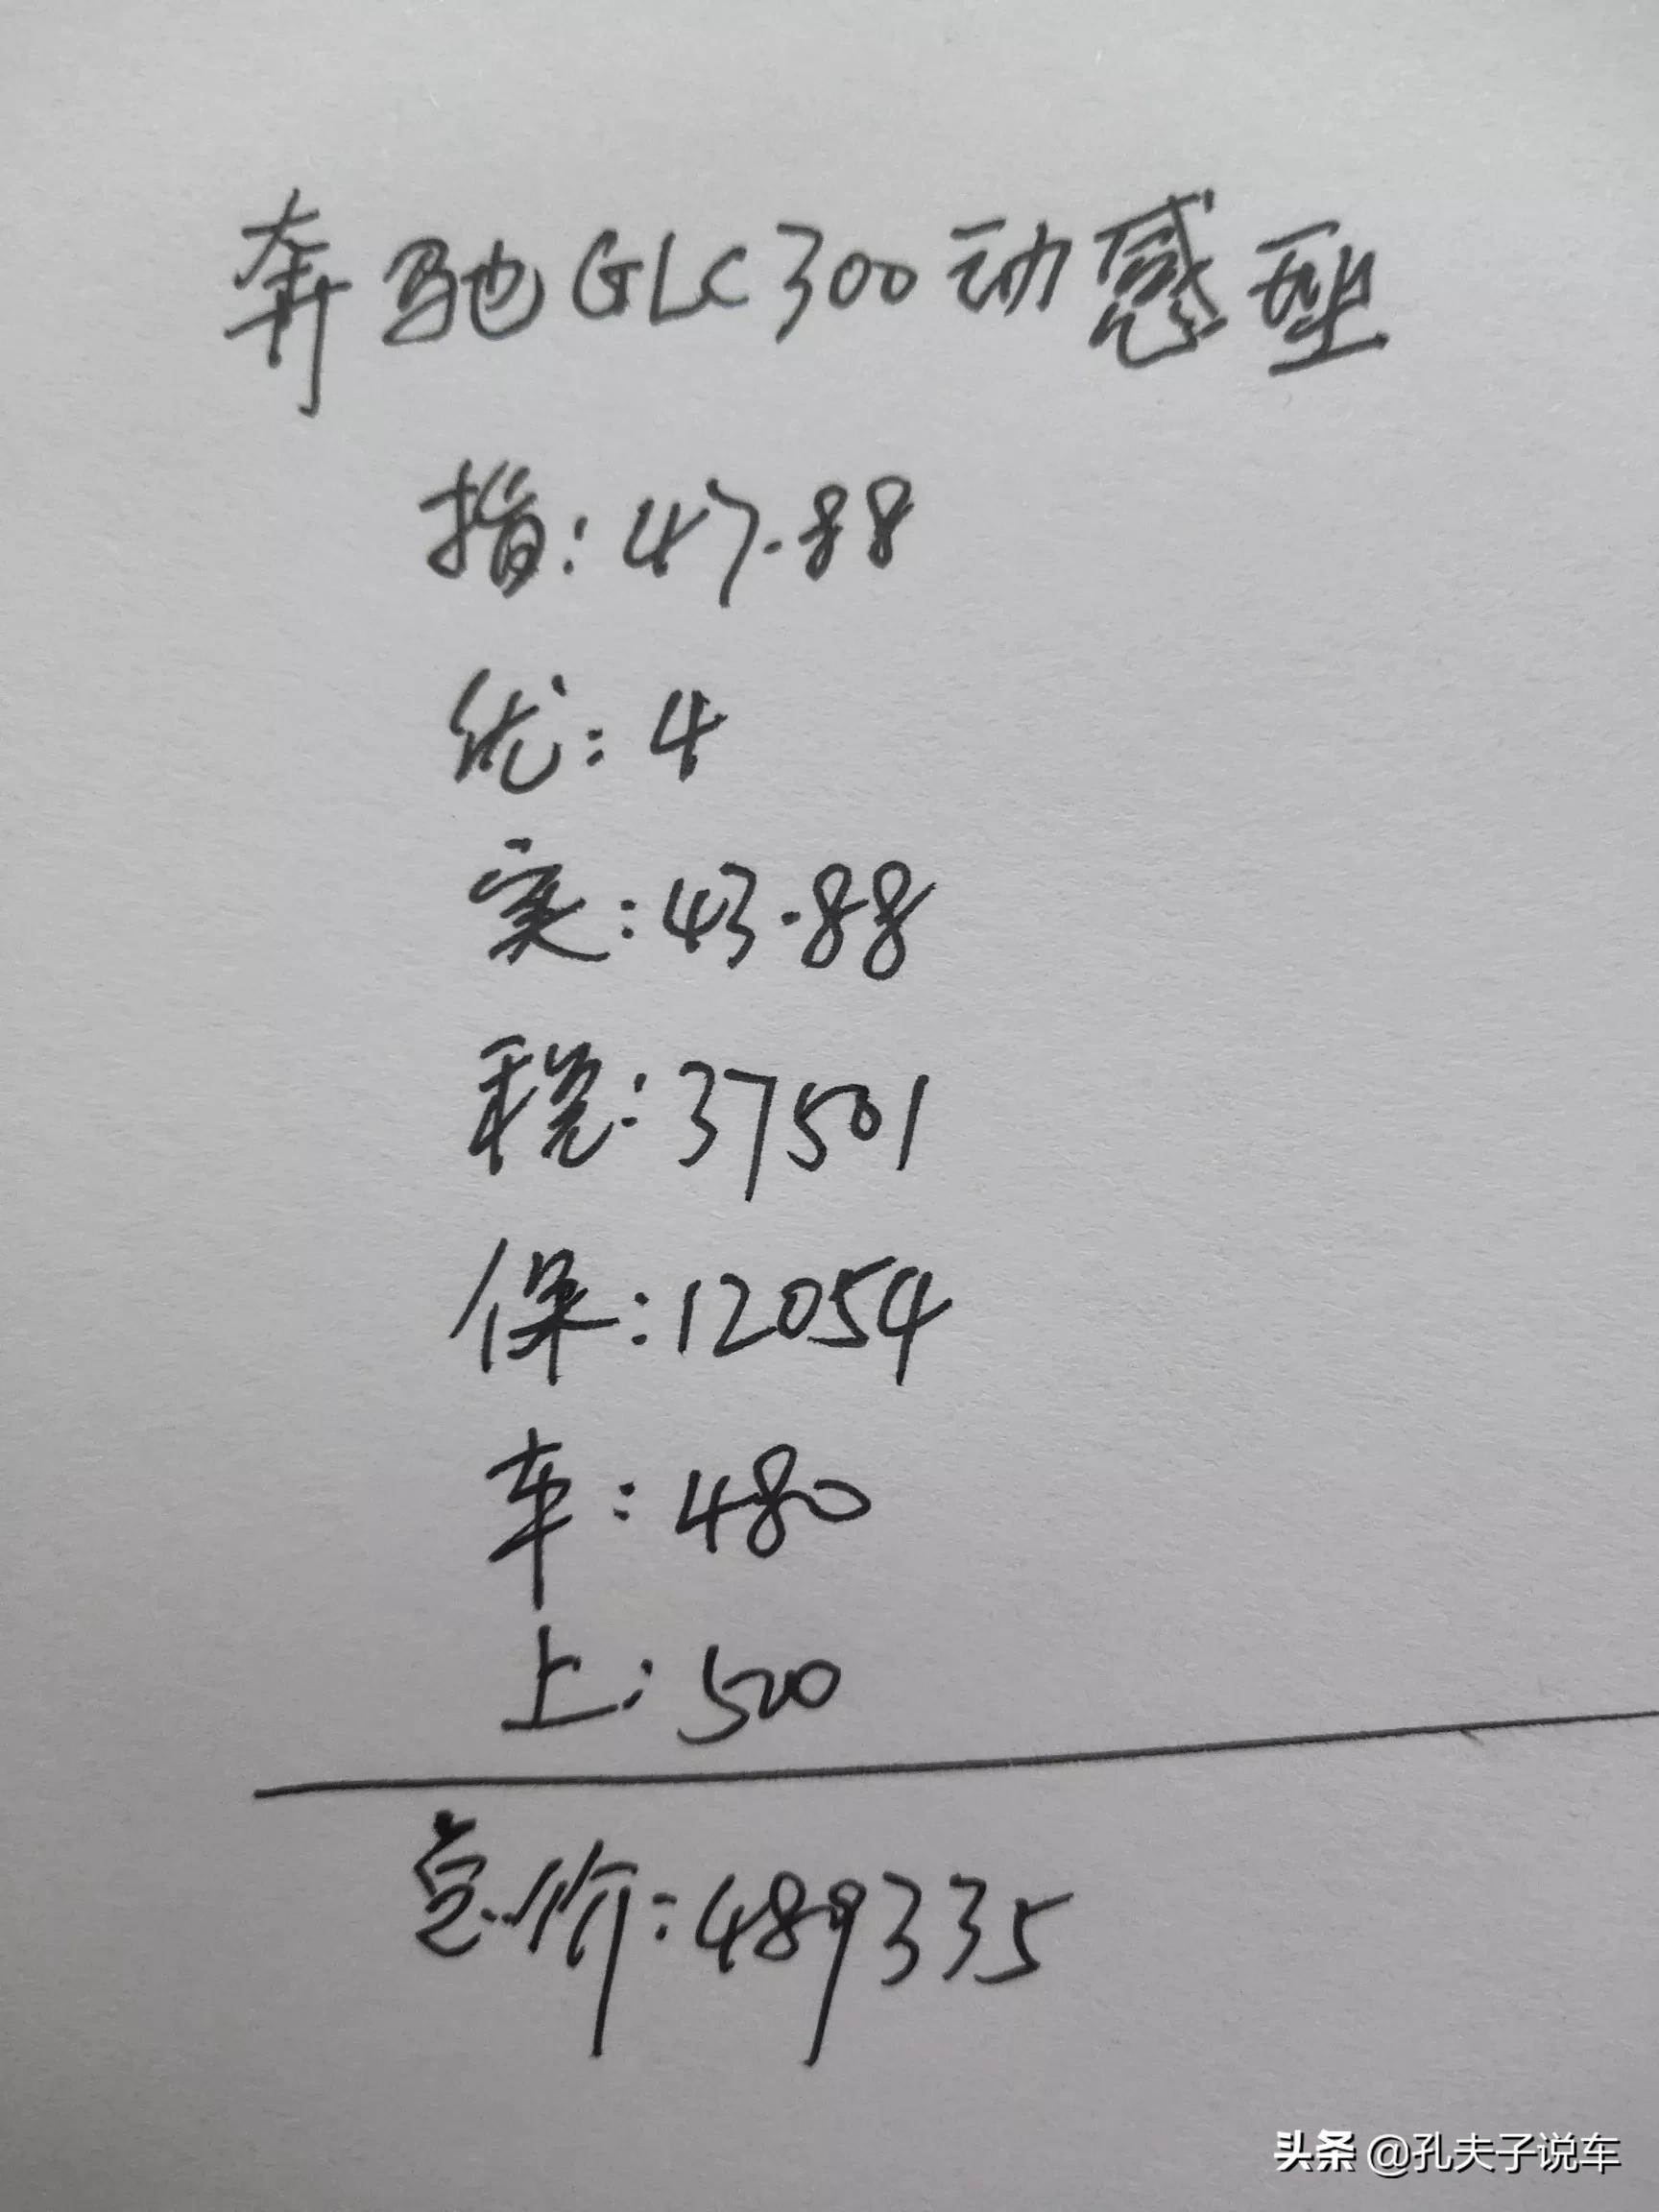 奔驰GLC300动感型
指:47.88
优:4
实:43.88
税:37501
保:12054
车:480
上:500
总价:489335
头条 @孔夫子说车